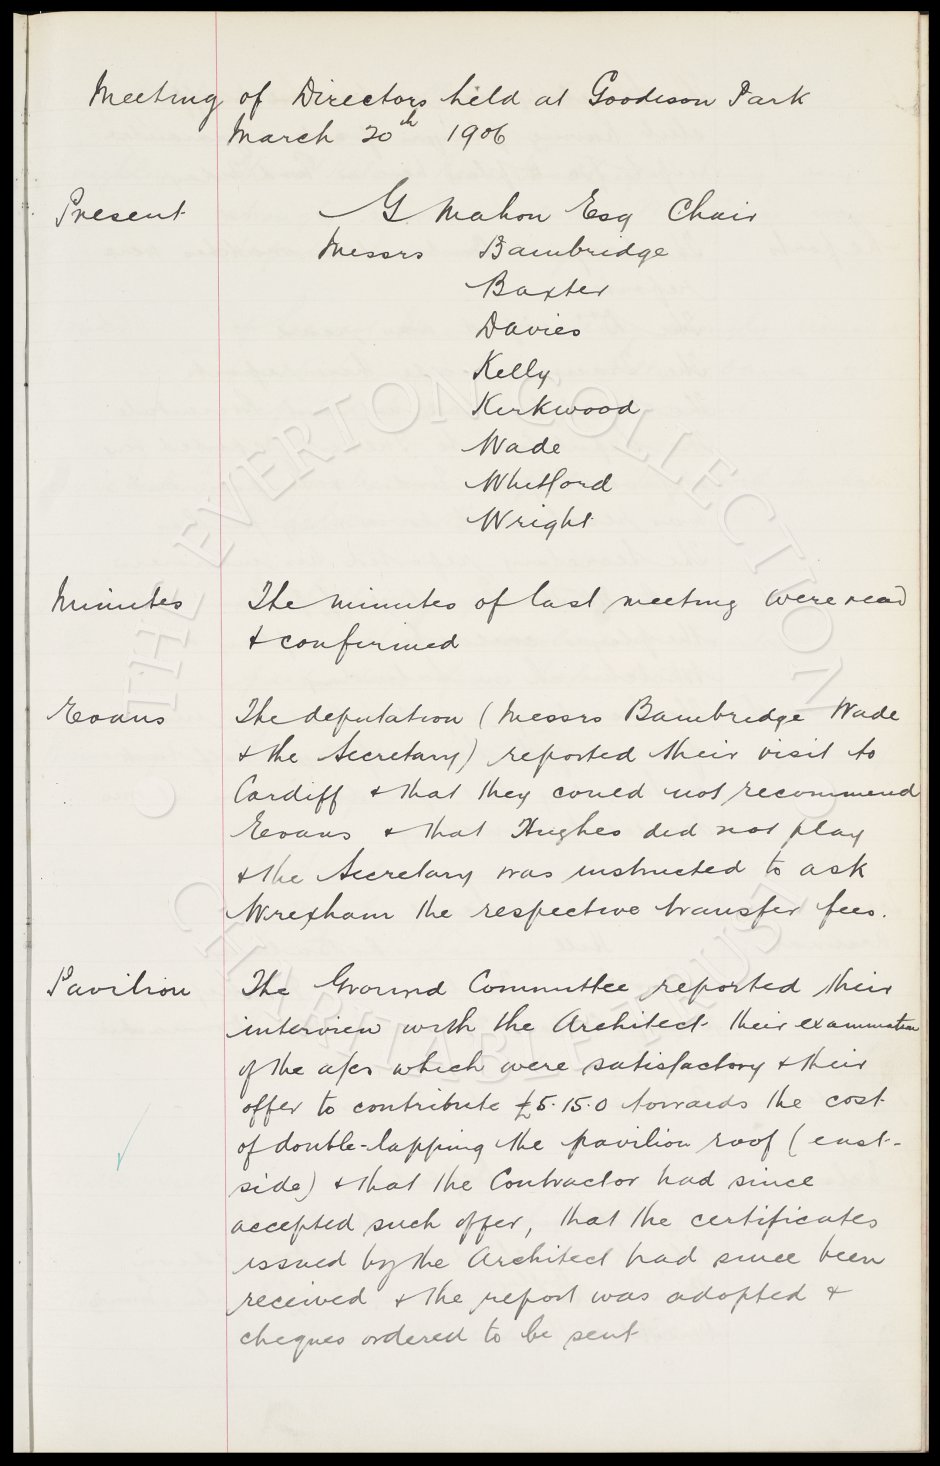 Meeting of Directors held at Goodison Park
March 20th 1906
Present
G Mahon Esq Chair
Messrs Bainbridge
Baxter
Davies
Kelly
Kirkwood
Wade
Whitford
Wright
Minutes
The minutes of last meeting were read
& confirmed
Evans
The deputation (Messrs Bainbridge Wade
& the Secretary) reported their visit to
Cardiff & that they could not recommend
Evans & that Hughes did not play
& the Secretary was instructed to ask
Wrexham the respective transfer fees.
Pavilion
The Ground Committee reported their
interview with the Architect their examination
of the a/cs which were satisfactory & their
offer to contribute £5.15.0 towards the cost
of double-lapping the pavilion roof (east-
side) & that the Contractor had since
accepted such offer, that the certificates
issued by the Architect had since been
received & the report was adopted &
cheques ordered to be sent
© THE EVERTON COLLECTION
CHARITABLE TRUST